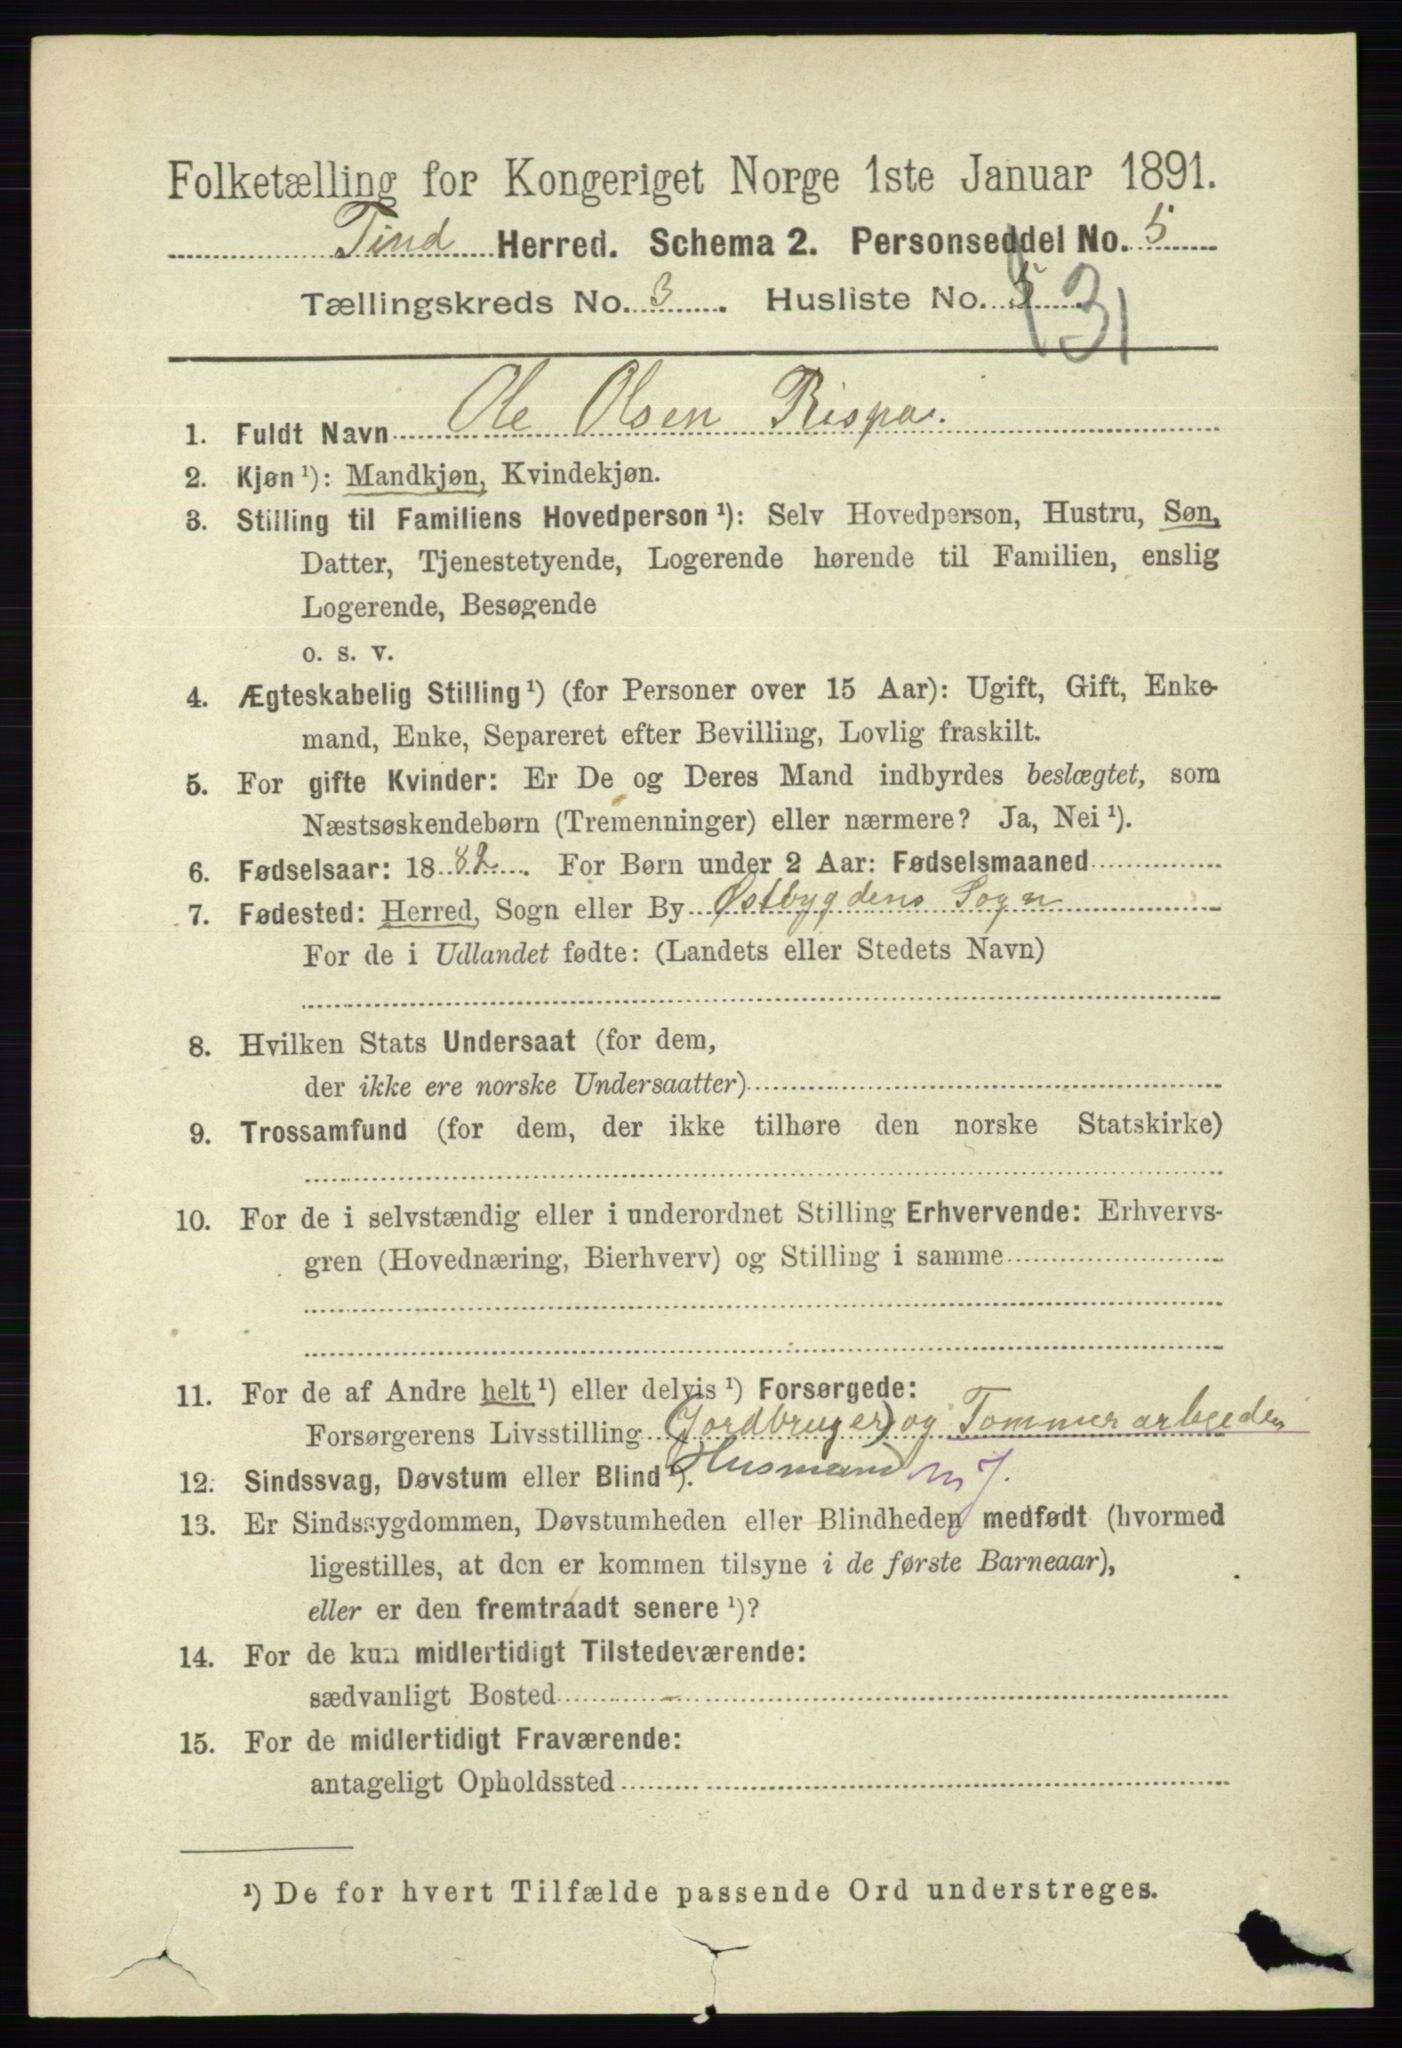 Folketælling for Kongeriget Norge 1ste Januar 1891.
Tind Herred. Schema 2. Personseddel No. 5
Tællingskreds No. 3. Husliste No. (3)
1. Fuldt Navn Ole Olsen Rispa.
2. Kjøn ¹): Mandkjøn, Kvindekjøn.
3. Stilling til Familiens Hovedperson ¹): Selv Hovedperson, Hustru, Søn,
Datter, Tjenestetyende, Logerende hørende til Familien, enslig
Logerende, Besøgende
o. s. v.
4. Ægteskabelig Stilling ¹) (for Personer over 15 Aar): Ugift, Gift, Enke-
mand, Enke, Separeret efter Bevilling, Lovlig fraskilt.
5. For gifte Kvinder: Er De og Deres Mand indbyrdes beslægtet, som
Næstsøskendebørn (Tremenninger) eller nærmere? Ja, Nei ¹).
6. Fødselsaar: 1882. For Børn under 2 Aar: Fødselsmaaned
7. Fødested: Herred, Sogn eller By Østbygdens Sogn
For de i Udlandet fødte: (Landets eller Stedets Navn)
8. Hvilken Stats Undersaat (for dem,
der ikke ere norske Undersaatter)
9. Trossamfund (for dem, der ikke tilhøre den norske Statskirke)
10. For de i selvstændig eller i underordnet Stilling Erhvervende: Erhvervs-
gren (Hovednæring, Bierhverv) og Stilling i samme
11. For de af Andre helt ¹) eller delvis ¹) Forsørgede:
Forsørgerens Livsstilling (Jordbruger) og Tommerarbeider
Husmand m J.
12. Sindssvag, Døvstum eller Blind ¹).
13. Er Sindssygdommen, Døvstumheden eller Blindheden medfødt (hvormed
ligestilles, at den er kommen tilsyne i de første Barneaar),
eller er den fremtraadt senere ¹)?
14. For de kun midlertidigt Tilstedeværende:
sædvanligt Bosted
15. For de midlertidigt Fraværende:
antageligt Opholdssted
¹) De for hvert Tilfælde passende Ord understreges.